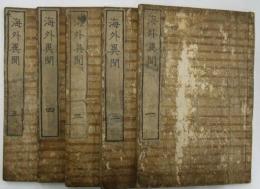 海外異聞 一
海外異聞 二
海外異聞 三
海外異聞 四
海外異聞 五